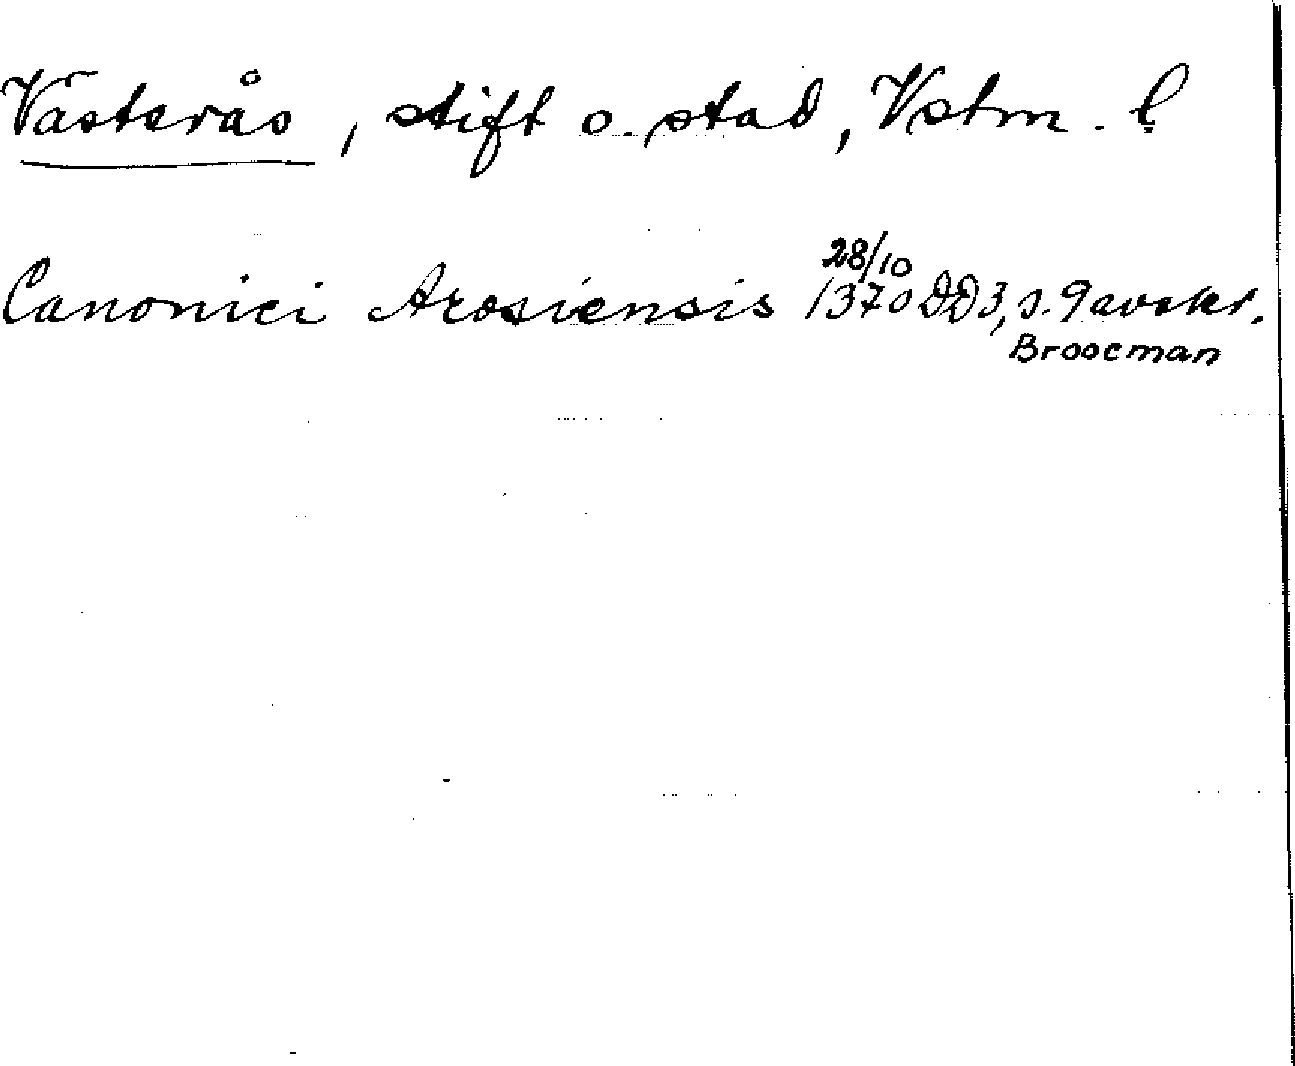 Västerås, stift o. stad, Vstm. l.
Canonici Arosiensis 28/10 1370 DD3, s. 9 avskr.
Broocman